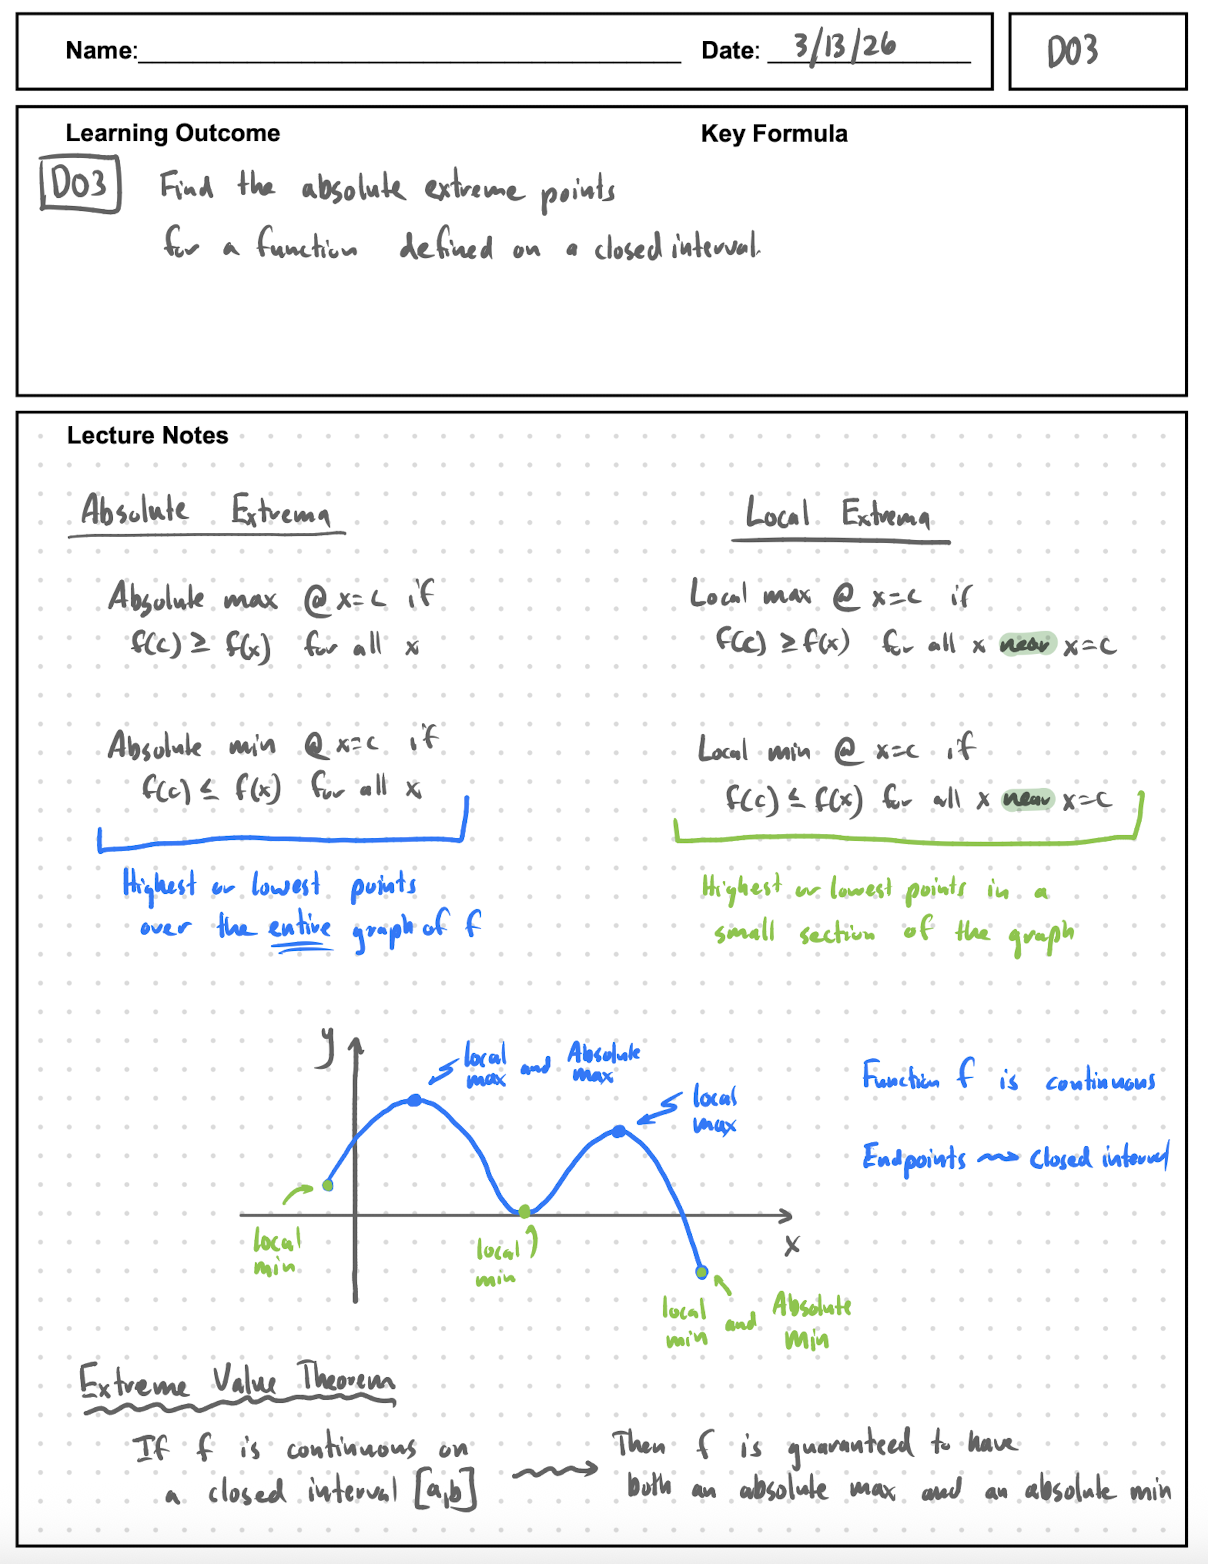 Name: Date: 3/13/26 D03
Learning Outcome
Key Formula
D03 Find the absolute extreme points
for a function defined on a closed interval.
Lecture Notes
Absolute Extrema
Absolute max @ x=c if
f(c) ≥ f(x) for all x
Absolute min @ x=c if
f(c) ≤ f(x) for all x
Highest or lowest points
over the entire graph of f
Local Extrema
Local max @ x=c if
f(c) ≥ f(x) for all x near x=c
Local min @ x=c if
f(c) ≤ f(x) for all x near x=c
Highest or lowest points in a
small section of the graph
y
local max and Absolute max
local max
local min
local min
x
local min and Absolute min
Function f is continuous
Endpoints ⇝ closed interval
Extreme Value Theorem
If f is continuous on
a closed interval [a,b]
Then f is guaranteed to have
both an absolute max and an absolute min